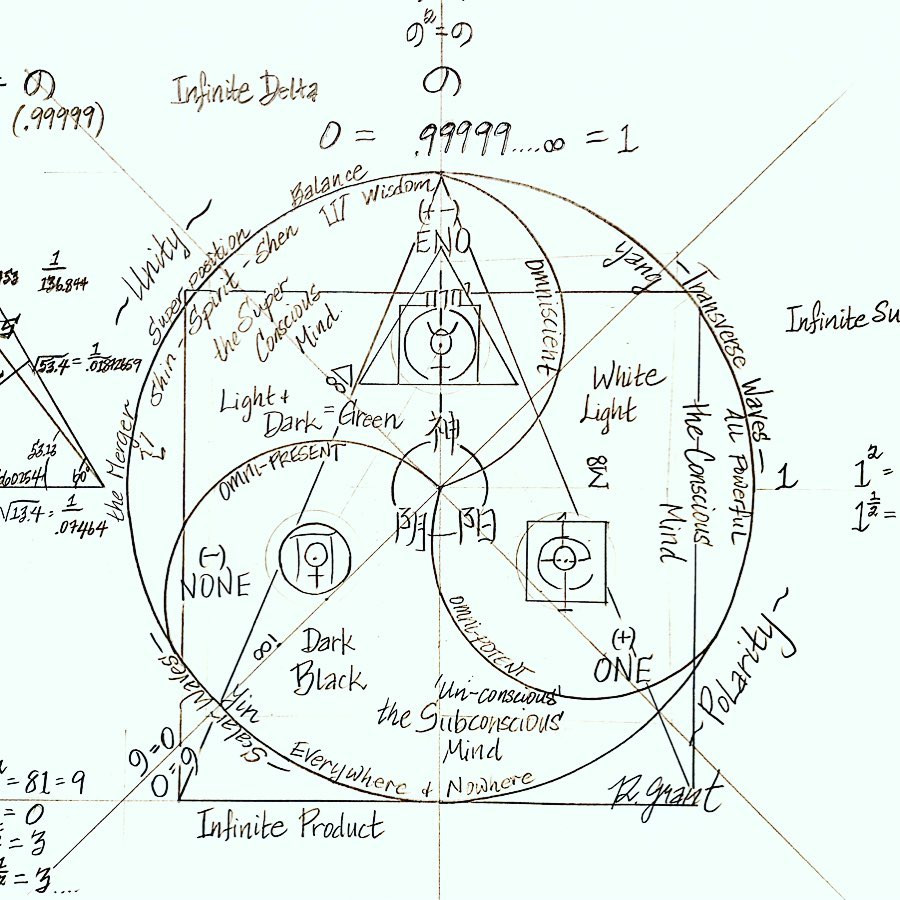 9² = 9
9
= 9
(.99999)
Infinite Delta
0 = .99999....∞ = 1
Balance
Wisdom
(+ -)
ENO
Omniscient
Yang
Transverse Waves
All Powerful
~ Unity ~
Super-position
Shin - Spirit - Shen
the Super
Conscious
Mind.
the Merger
1
136.844
√53.4 = 1
.01872659
53.13
60°
√13.4 = 1
.07464
Infinite Su
Light +
Dark = Green
White
Light
the Conscious
Mind
神
明
陽
OMNI-PRESENT
1
1² =
1^½ =
(-)
NONE
Dark
Black
Omni-Potent
(+)
ONE
~ Polarity ~
'Un-conscious'
the Subconscious
Mind
Yin
Scalar Waves
Everywhere + Nowhere
9=0
0=9
= 81 = 9
= 0
= 3
= 3....
Infinite Product
R. Grant